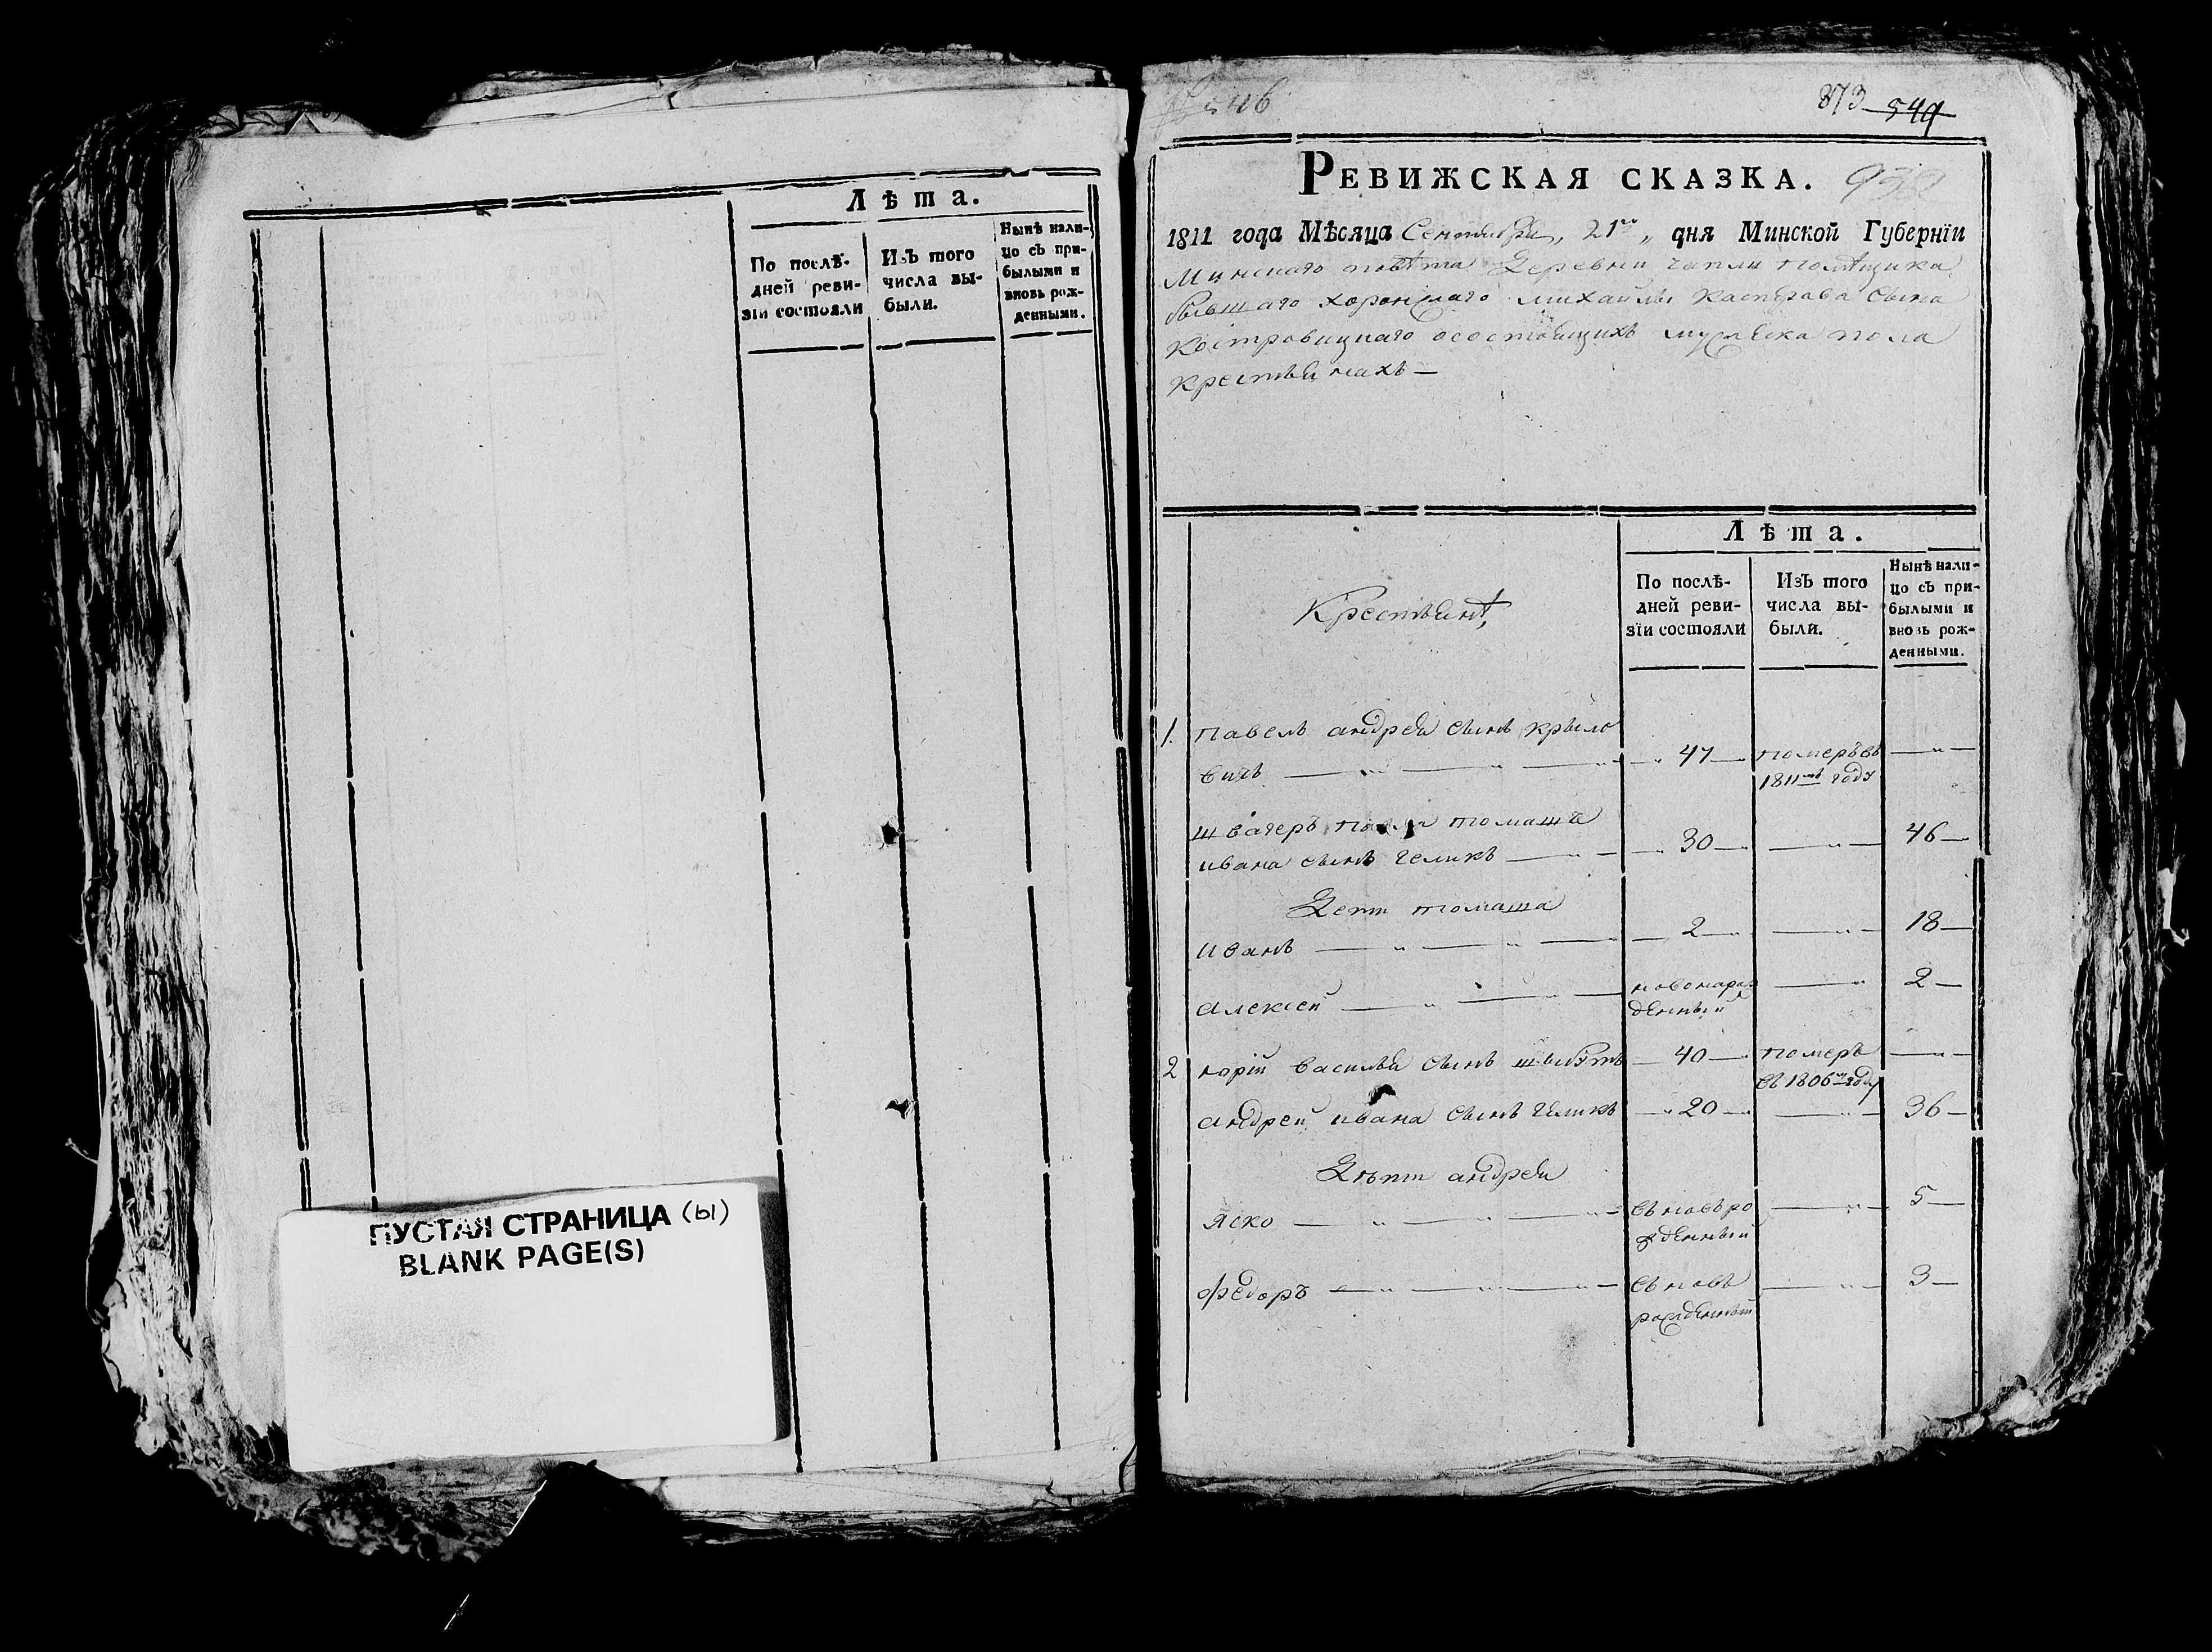 Лѣта.
По послѣ-
дней реви-
зіи состояли
Изъ того
числа вы-
были.
Нынѣ нали-
цо съ при-
былыми и
вновь рож-
денными.
ПУСТАЯ СТРАНИЦА (Ы)
BLANK PAGE(S)
873 549
РЕВИЖСКАЯ СКАЗКА.
1811 года Мѣсяца Сентября, 21го дня Минской Губерніи
Минскаго повѣта Деревни чапли помѣщика
бывшаго хоронжаго михайлы каспрова сына
костровицкаго осостоящихъ мужеска пола
крестьянахъ —
Крестьянѣ,
Лѣта.
По послѣ-
дней реви-
зіи состояли
Изъ того
числа вы-
были.
Нынѣ нали-
цо съ при-
былыми и
вновь рож-
денными.
1. павелъ андрея сынъ крыло
вичъ 47 померъ въ
1811мъ году
швагеръ томашъ
ивана сынъ геликъ 30 46
Дети томаша
иванъ 2 18
алексей новонарож
денный 2
2 юрій василья сынъ 40 померъ
въ 1806м году
андрей ивана сынъ геликъ 20 36
Дѣти андрея
яско въновѣро
жденный 5
федоръ вновь
рожденный 3